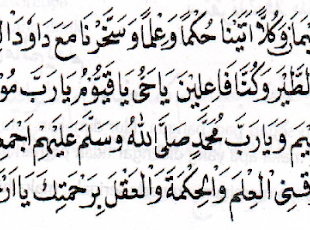 يْمَانَ وَكُلًّا اٰتَيْنَا حُكْمًا وَعِلْمًا وَسَخَّرْنَا مَعَ دَاوُدَ الْ
الطَّيْرَ وَكُنَّا فَاعِلِيْنَ يَاحَيُّ يَاقَيُّوْمُ يَارَبَّ مُوْ
يْمَ وَيَارَبَّ مُحَمَّدٍ صَلَّى اللهُ وَسَلَّمَ عَلَيْهِمْ اَجْمَعِ
قْنِى الْعِلْمَ وَالْحِكْمَةَ وَالْعَقْلَ بِرَحْمَتِكَ يَااَرْ